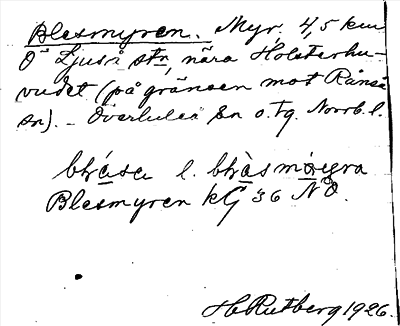 Blesmyren. Myr. 4,5 km
O Ljuså stn, nära Holsterhu-
vudet (på gränsen mot Råneå
sn). - Överluleå sn o. tg. Norrb. l.
l.
Blesmyren kG 36 NO.
H Rutberg 1926.